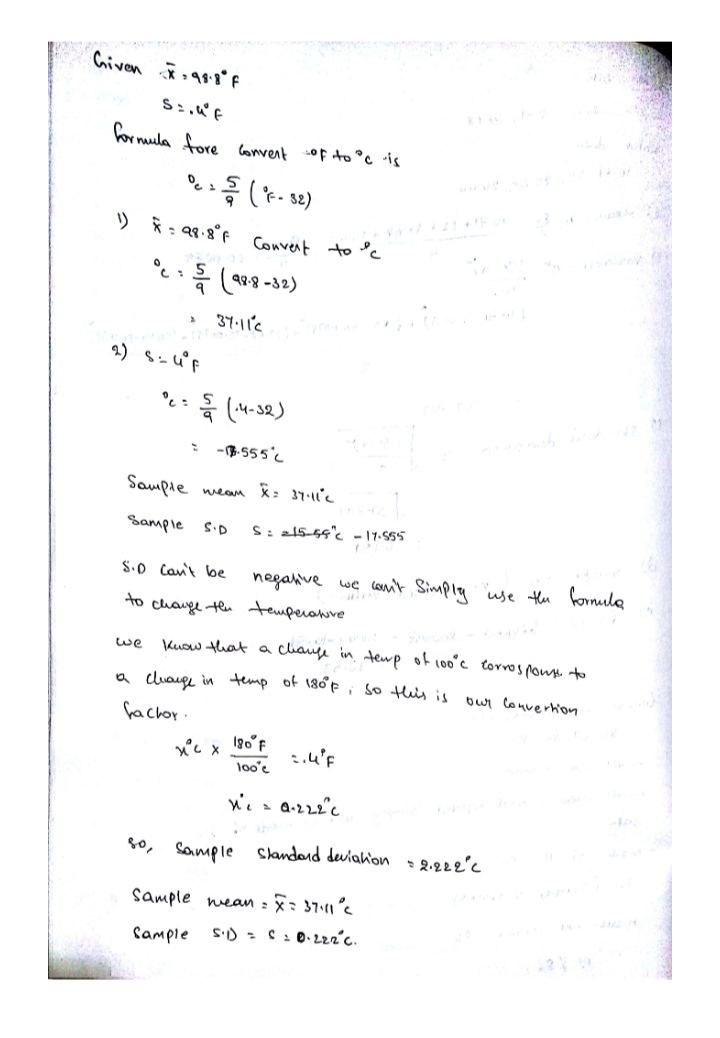 Given x̄ = 98.8°F
S = .4°F
formula fore convert °F to °C is
°C = 5/9 (°F - 32)
1) x̄ = 98.8°F Convert to °C
°C = 5/9 (98.8 - 32)
= 37.11°C
2) S = 4°F
°C = 5/9 (.4 - 32)
= -17.555°C
Sample mean x̄ = 37.11°C
Sample S.D S = -15.55°C - 17.555
S.D Can't be negative we can't Simply use the formula
to change the temperature
we know that a change in temp of 100°C corresponds to
a change in temp of 180°F, so this is our convertion
factor.
x°C × 180°F/100°C = .4°F
x°C = 0.222°C
So, Sample standard deviation = 2.222°C
Sample mean = x̄ = 37.11°C
Sample S.D = S = 0.222°C.